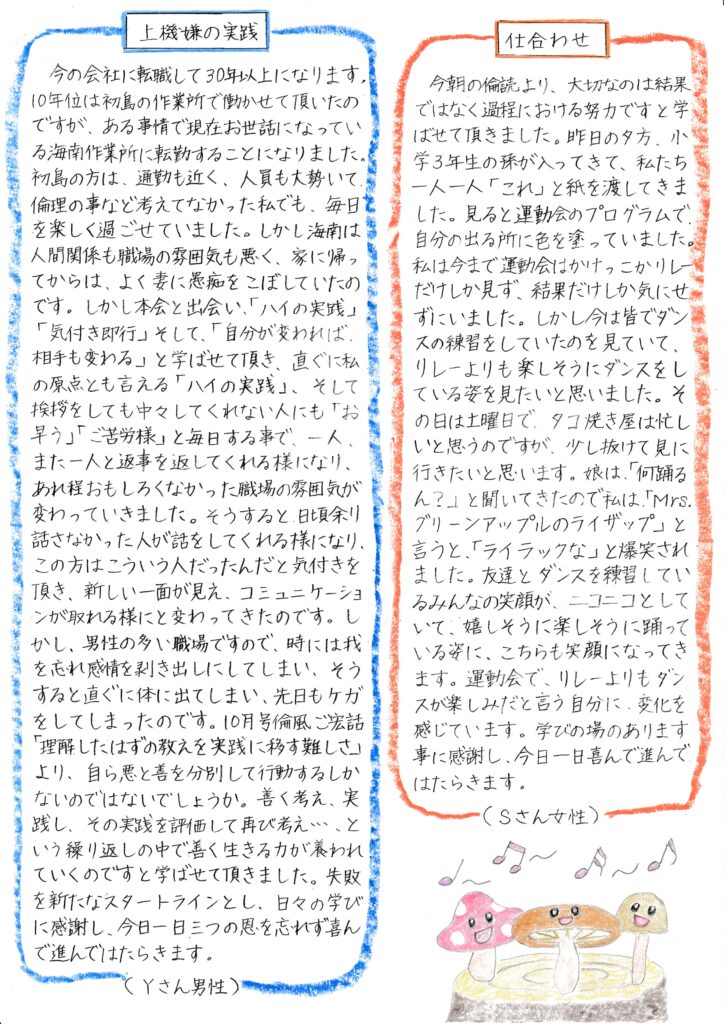 上機嫌の実践
今の会社に転職して30年以上になります。
10年位は初島の作業所で働かせて頂いたの
ですが、ある事情で現在お世話になってい
る海南作業所に転勤することになりました。
初島の方は、通勤も近く、人員も大勢いて、
倫理の事など考えてなかった私でも、毎日
を楽しく過ごせていました。しかし海南は
人間関係も職場の雰囲気も悪く、家に帰っ
てからは、よく妻に愚痴をこぼしていたの
です。しかし本会と出会い、「ハイの実践」
「気付き即行」そして、「自分が変われば、
相手も変わる」と学ばせて頂き、直ぐに私
の原点とも言える「ハイの実践」、そして
挨拶をしても中々してくれない人にも「お
早う」「ご苦労様」と毎日する事で、一人、
また一人と返事を返してくれる様になり、
あれ程おもしろくなかった職場の雰囲気が
変わっていきました。そうすると、日頃余り
話さなかった人が話をしてくれる様になり、
この方はこういう人だったんだと気付きを
頂き、新しい一面が見え、コミュニケーショ
ンが取れる様にと変わってきたのです。し
かし、男性の多い職場ですので、時には我
を忘れ感情を剥き出しにしてしまい、そう
すると直ぐに体に出てしまい、先日もケガ
をしてしまったのです。10月号倫風ご宏話
「理解したはずの教えを実践に移す難しさ」
より、自ら悪と善を分別して行動するしか
ないのではないでしょうか。善く考え、実
践し、その実践を評価して再び考え…、と
いう繰り返しの中で善く生きる力が養われ
ていくのですと学ばせて頂きました。失敗
を新たなスタートラインとし、日々の学び
に感謝し、今日一日三つの恩を忘れず喜ん
で進んではたらきます。
(Yさん男性)
仕合わせ
今朝の倫読より、大切なのは結果
ではなく過程における努力ですと学
ばせて頂きました。昨日の夕方、小
学3年生の孫が入ってきて、私たち
一人一人「これ」と紙を渡してきま
した。見ると運動会のプログラムで
自分の出る所に色を塗っていました。
私は今まで運動会はかけっこかリレー
だけしか見ず、結果だけしか気にせ
ずにいました。しかし今は皆でダン
スの練習をしていたのを見ていて、
リレーよりも楽しそうにダンスをし
ている姿を見たいと思いました。そ
の日は土曜日で、タコ焼き屋は忙し
いと思うのですが、少し抜けて見に
行きたいと思います。娘は、「何踊る
ん?」と聞いてきたので私は、「Mrs.
グリーンアップルのライザップ」と
言うと、「ライラックな」と爆笑され
ました。友達とダンスを練習してい
るみんなの笑顔が、ニコニコとして
いて、嬉しそうに楽しそうに踊って
いる姿に、こちらも笑顔になってき
ます。運動会で、リレーよりもダン
スが楽しみだと言う自分に、変化を
感じています。学びの場のあります
事に感謝し、今日一日喜んで進んで
はたらきます。
(Sさん女性)